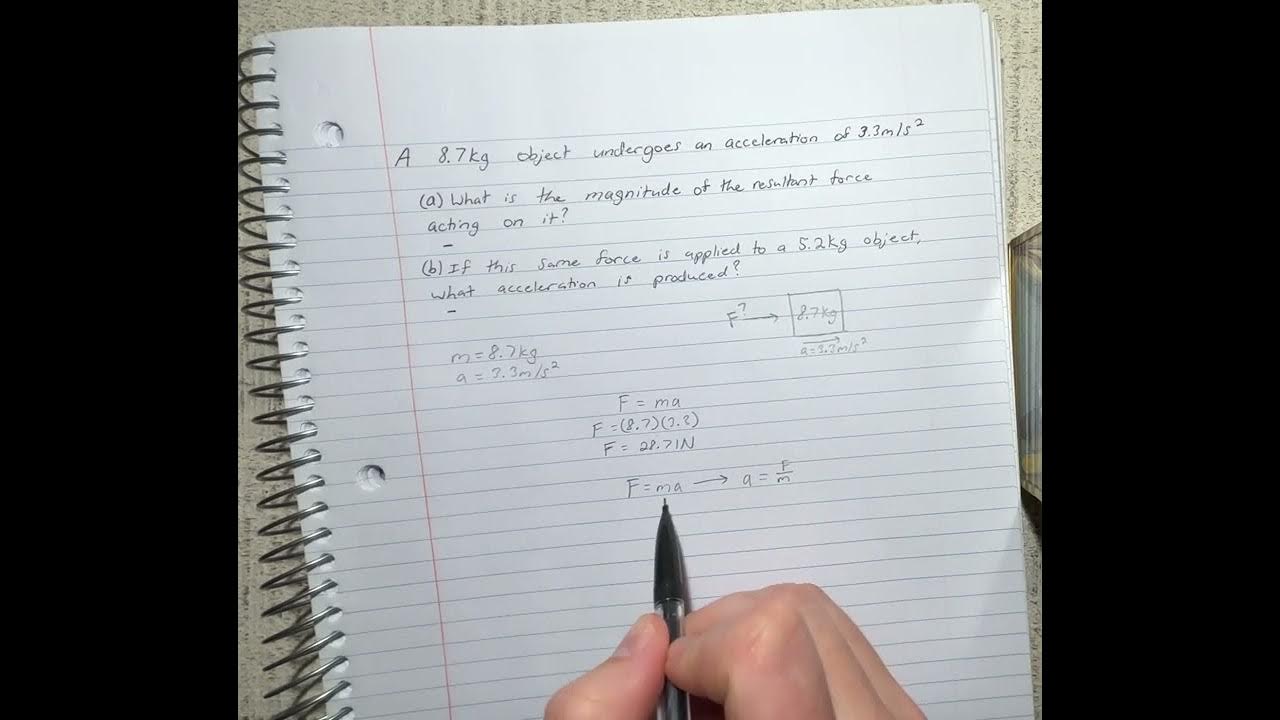 A 8.7kg object undergoes an acceleration of 3.3m/s²
(a) What is the magnitude of the resultant force
acting on it?
(b) If this same force is applied to a 5.2kg object,
what acceleration is produced?
F? → 8.7kg
a = 3.3m/s²
m = 8.7kg
a = 3.3m/s²
F = ma
F = (8.7)(3.3)
F = 28.71N
F = ma → a = F/m